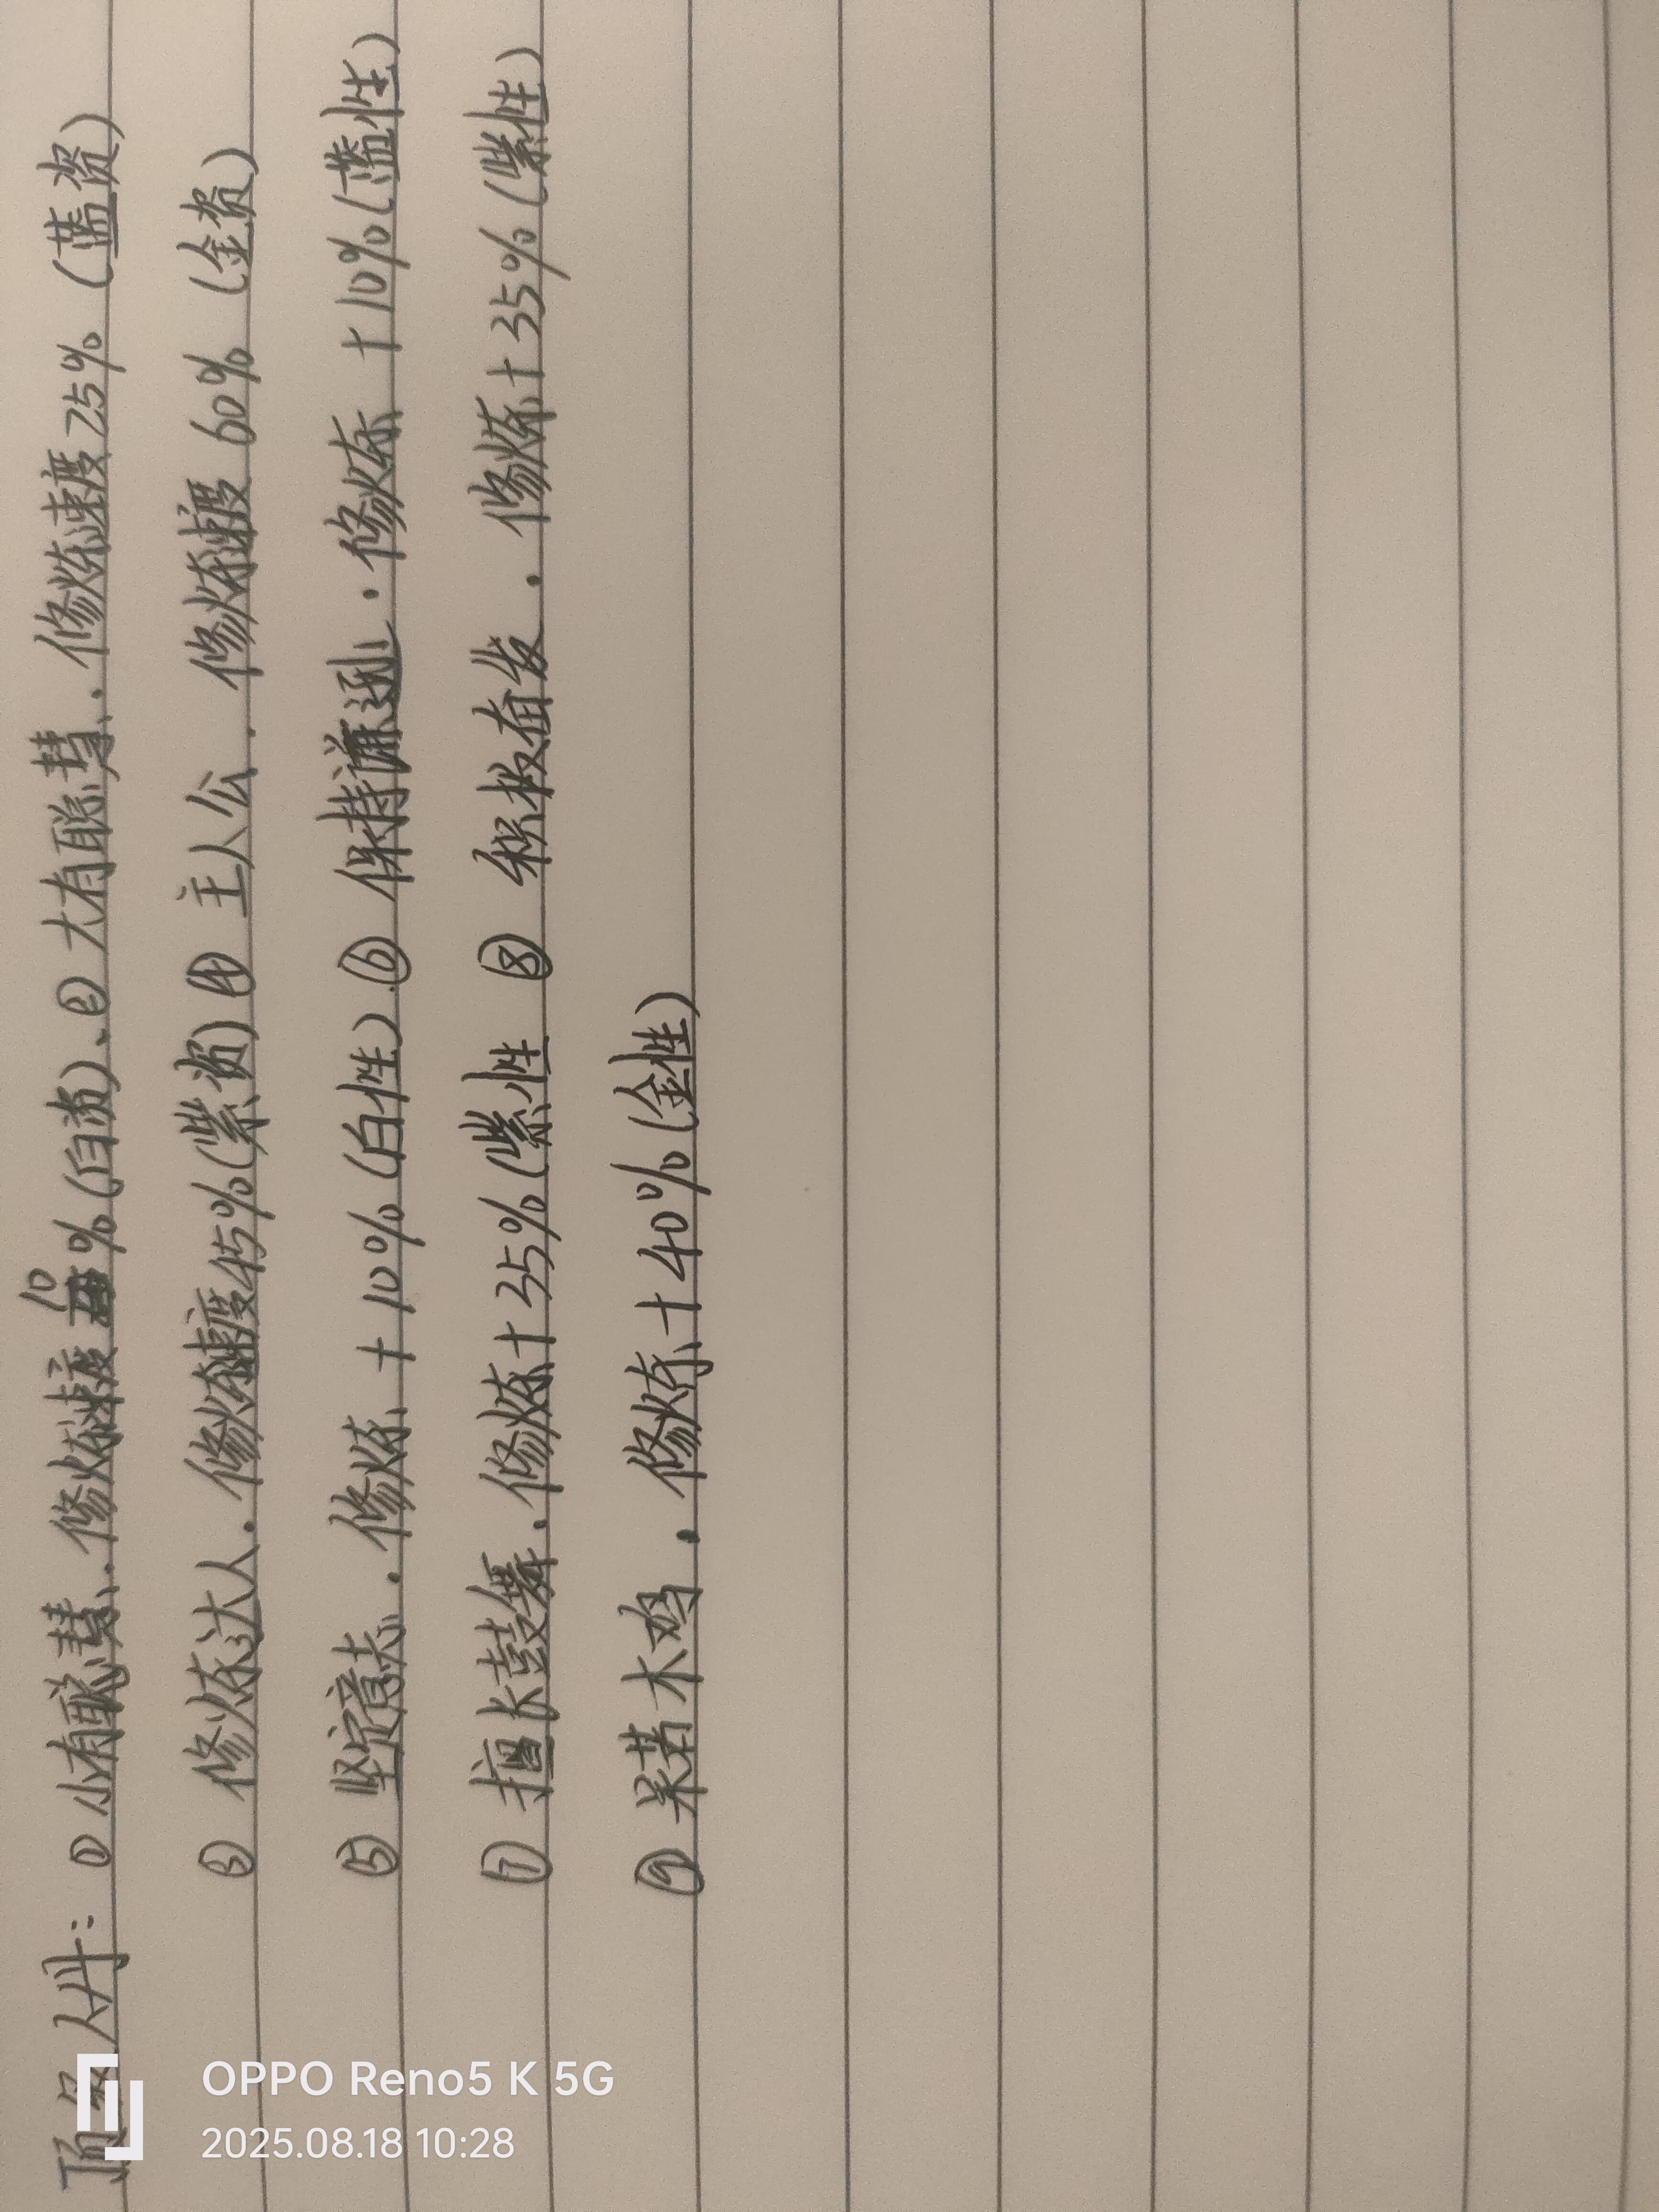 顶级人才: ① 小有聪慧. 修炼速度10%(白资)、② 大有聪慧. 修炼速度25% (蓝资)
③ 修炼达人. 修炼速度45%(紫资) ④ 主人公. 修炼速度60% (金资)
⑤ 坚定意志. 修炼+10%(白性). ⑥ 保持谦逊. 修炼+10%(蓝性)
⑦ 擅长鼓舞. 修炼+35%(紫性 ⑧ 积极奋发. 修炼+35%(紫性)
⑨ 呆若木鸡. 修炼+40%(金性)
OPPO Reno5 K 5G
2025.08.18 10:28